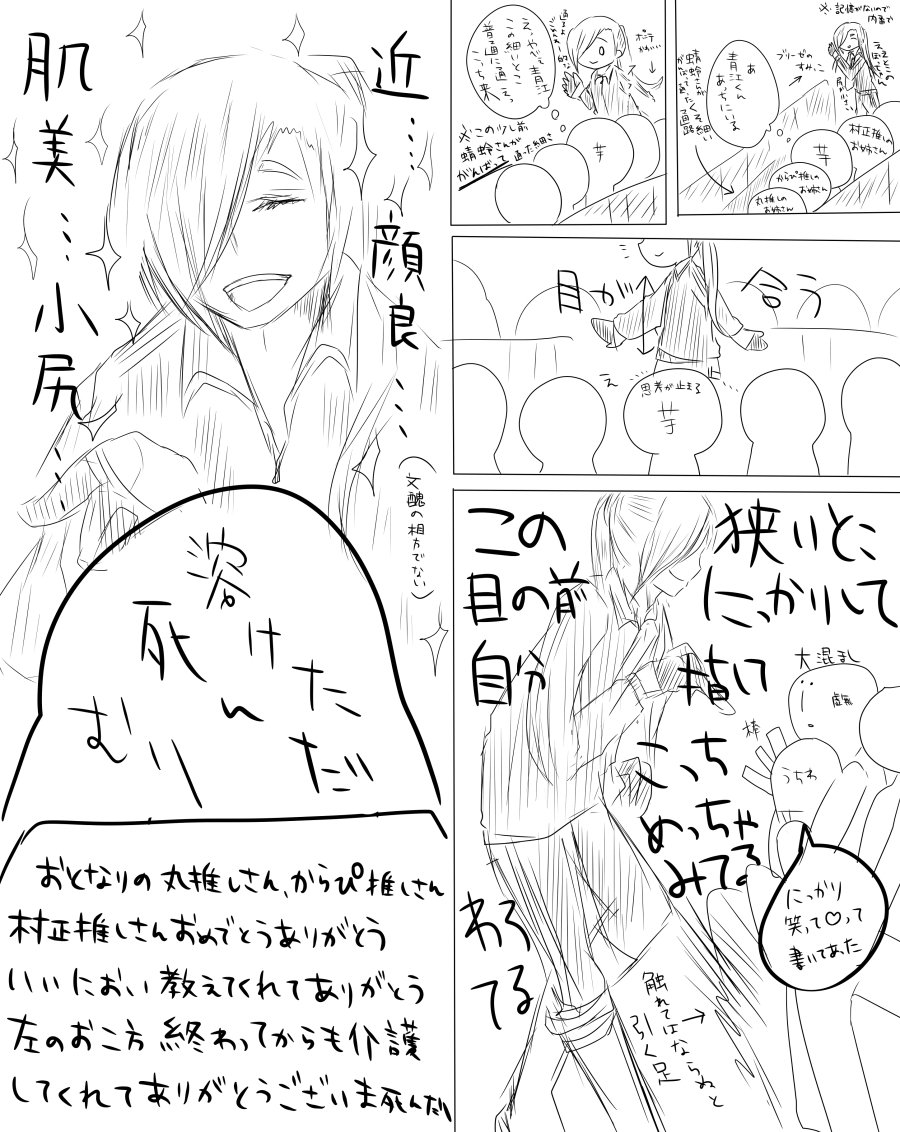 ※記憶がないので
内番で
ブリーゼの
すみっこ
あ
青江くん
あっちにいる
蜻蛉さんが
村正推しの
お姉さん
芋
からぴ推しの
お姉さん
丸推しの
お姉さん
え、やだ青江
この細いところ
普通に通えっ
こっち来
ポニテ
かわいい…
※この少し前
蜻蛉さんが
がんばって
通った細さ
芋
目が合う
え
思考が止まる
芋
狭いとこ
にっかりして
この
目の前
自分
指して
こっち
めっちゃ
みてる
わろ
てる
大混乱
虚無
棒
うちわ
にっかり
笑って♡って
書いてあった
触れてはならぬと
引く足
近…顔良…
(文醜の相方でない)
肌美…小尻…
溶けただ
死んただ
むり
おとなりの丸推しさん、からぴ推しさん
村正推しさんおめでとうありがとう
いいにおい教えてくれてありがとう
左のおこ方終わってからも介護
してくれてありがとうございま死んだ